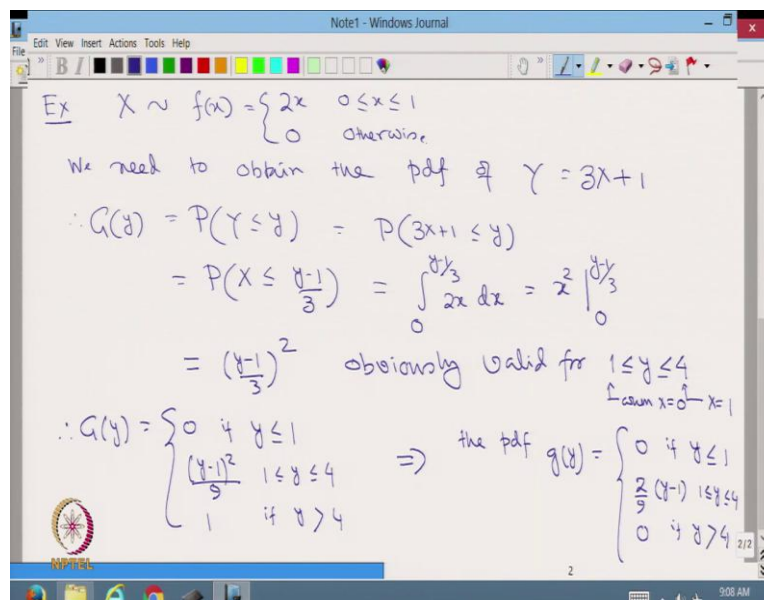 Note1 - Windows Journal
File Edit View Insert Actions Tools Help
B I
Ex X ~ f(x) = { 2x 0 ≤ x ≤ 1
0 otherwise.
We need to obtain the pdf of Y = 3X+1
∴ G(y) = P(Y ≤ y) = P(3X+1 ≤ y)
= P(X ≤ (y-1)/3) = ∫₀^{(y-1)/3} 2x dx = x² |₀^{(y-1)/3}
= ((y-1)/3)² obviously valid for 1 ≤ y ≤ 4
x=0 x=1
∴ G(y) = { 0 if y ≤ 1
(y-1)²/9 1 ≤ y ≤ 4
1 if y > 4
⇒ the pdf g(y) = { 0 if y ≤ 1
2/9 (y-1) 1 ≤ y ≤ 4
0 if y > 4
NPTEL
2
2/2
9:08 AM